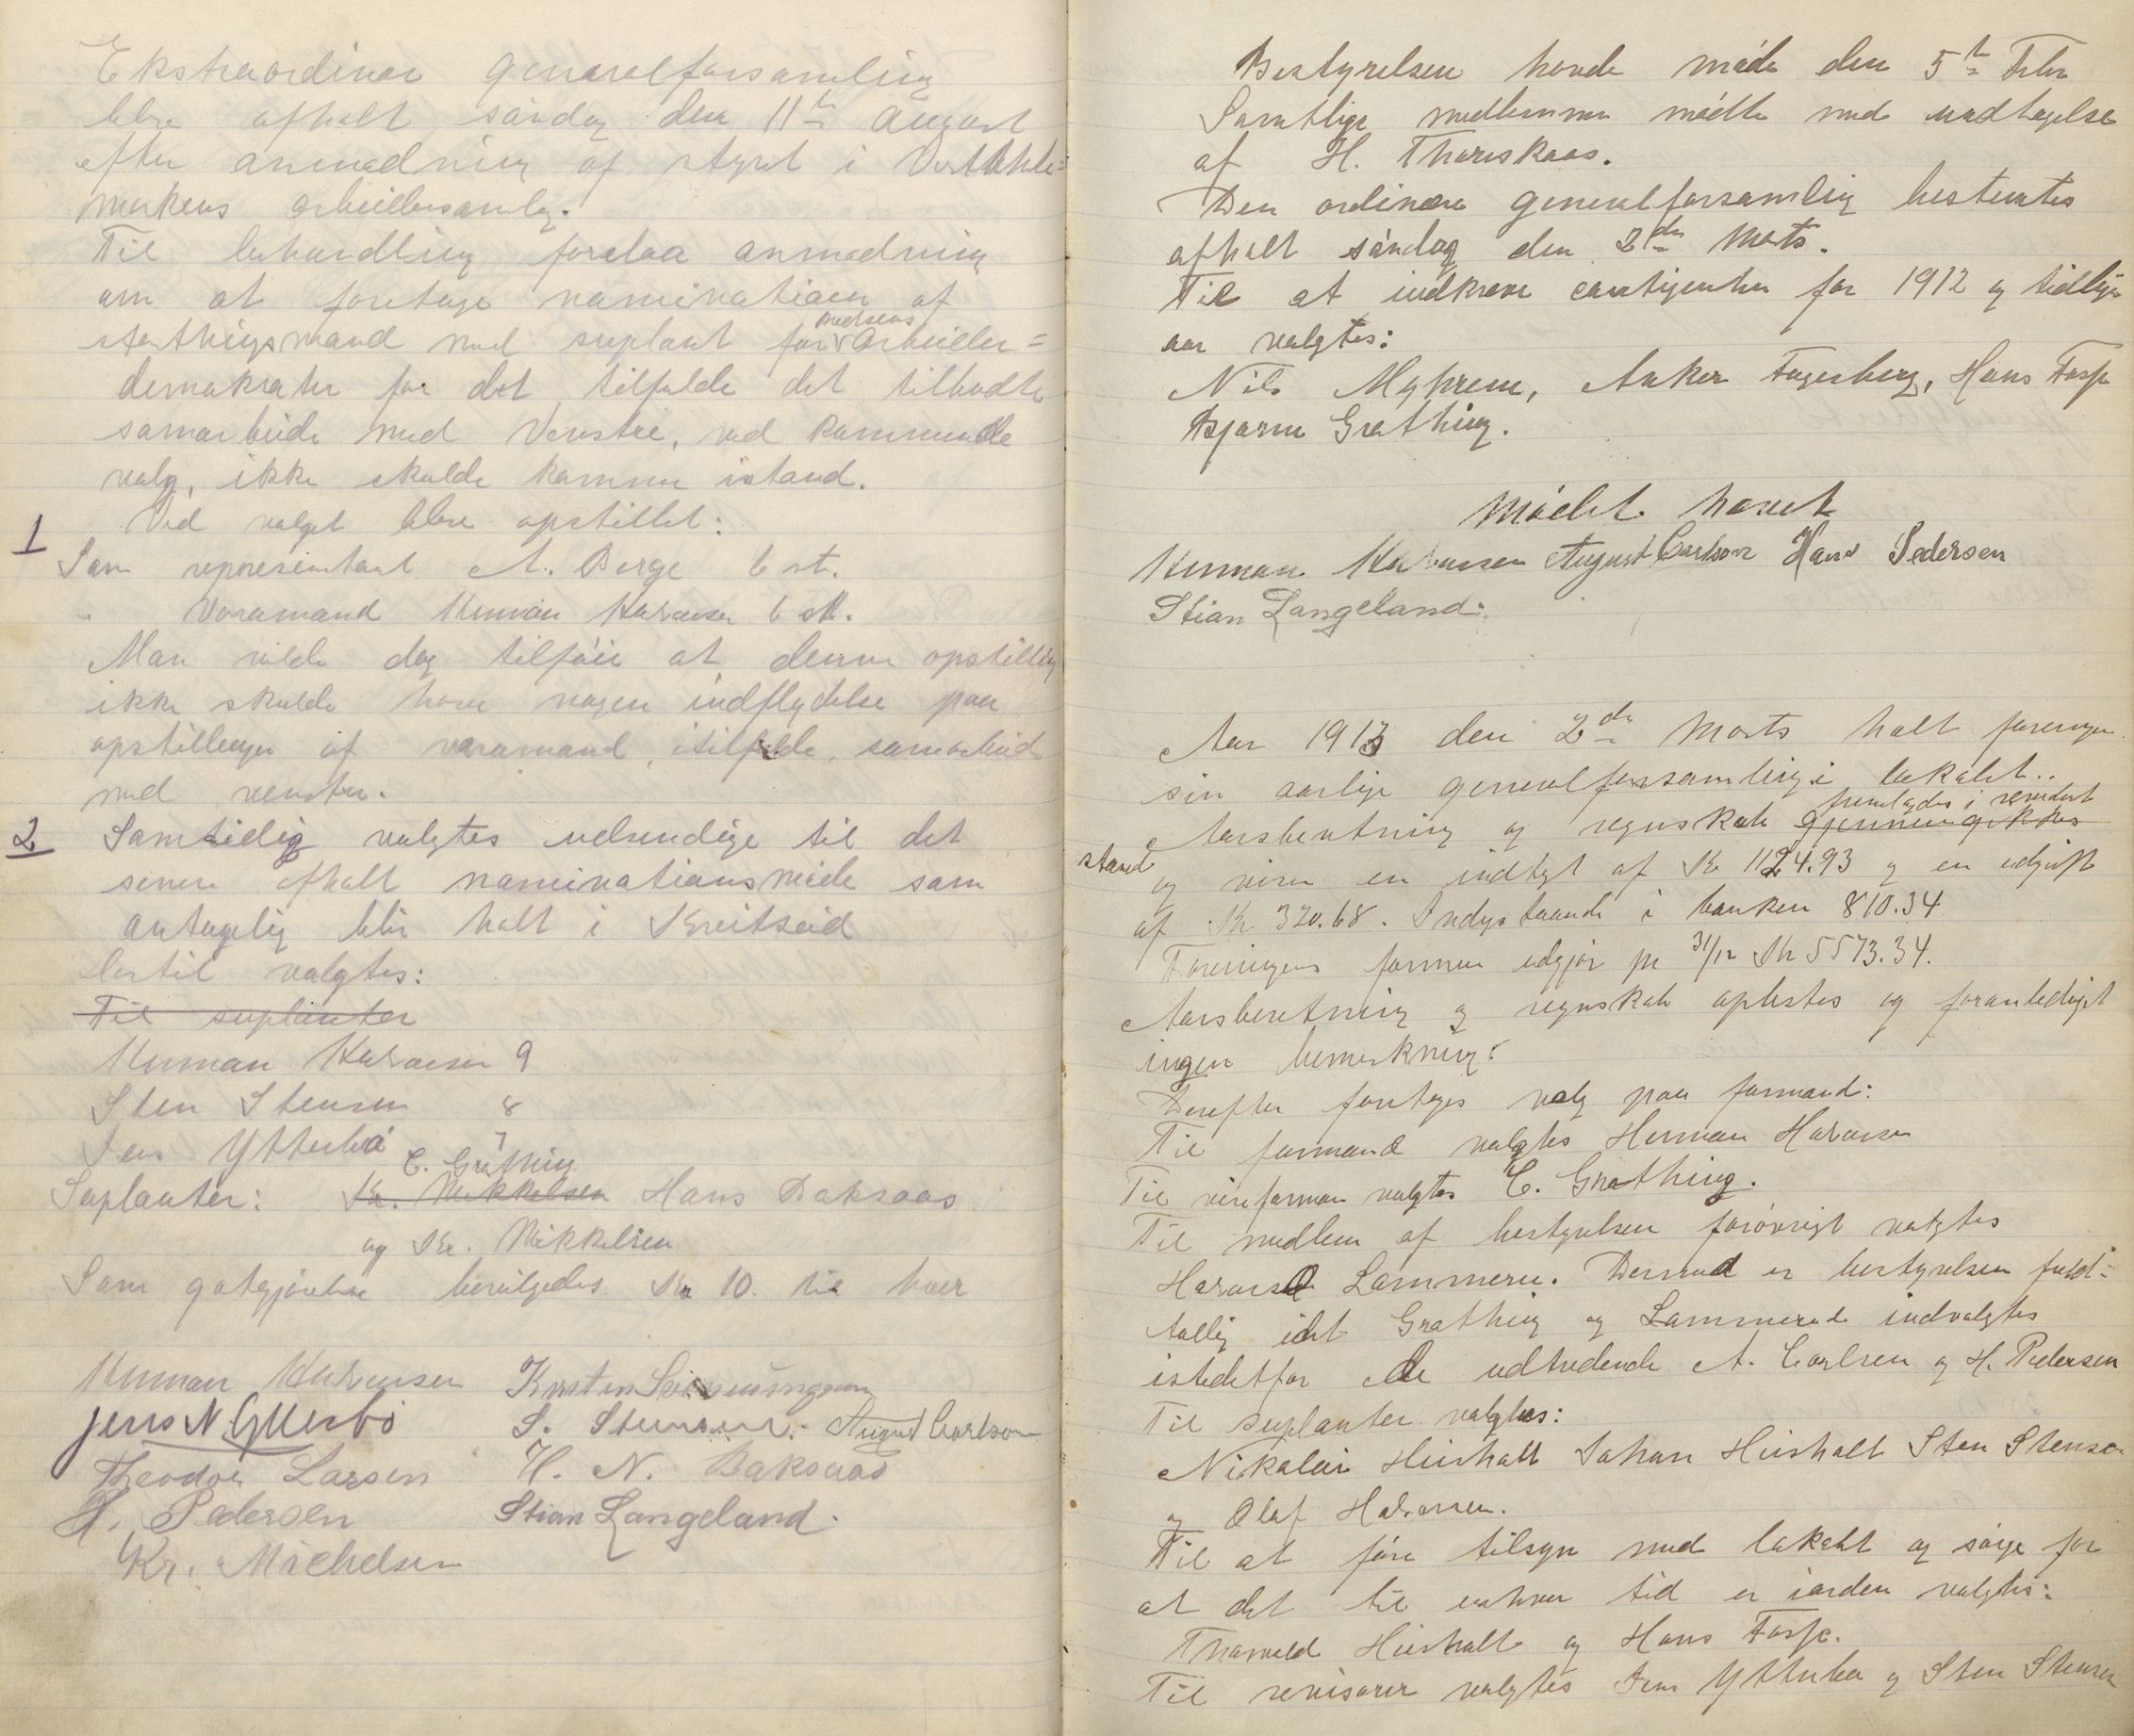 Ekstraordinær generalforsamling
blev afholt søndag den 11te August
efter anmodning af styret i Vestthele=
markens arbeidersamlag.
Til behandling forelaa anmodning
om at foretage naminationen af
storthingsmand med suplant for Medsens Arbeider=
demokrater for det tilfælde det tilbudte
samarbeide med Venstre, ved kommende
valg, ikke skulde komme istand.
1 Ved valget blev opstillet:
Som representant A. Berge 6 st.
" Varamand Herman Halvorsen 6 st.
Man vilde dog tilføie at denne opstilling
ikke skulde have nogen indflydelse paa
opstillingen af varamand, itilfælde, samarbeide
med venstre.
2 Samtidig valgtes udsendige til det
senere afholt naminationsmøde som
antagelig blir holt i Kviteseid
hertil valgtes:
Til suplanter
Herman Halvorsen 9
Sten Stensen 8
Jens Ytterbø 7
Suplanter: Kr. Mikkelsen C. Grathing Hans Baksaas
og Kr. Mikkelsen
Som gotgjørelse bevilgedes Kr 10. til hver
Herman Halvorsen Kirsten
Jens N. Ytterbø S. Stensen. August Carlson
Theodor Larsen H. N. Baksaas
H. Pedersen Stian Langeland.
Kr. Michelsen
Bestyrelsen havde møde den 5te Febr
Samtlige medlemmer mødte med undtagelse
af H. Thoreskaas.
Den ordinære generalforsamling bestemtes
afholt søndag den 2den Marts.
Til at indkræve contigenten for 1912 og tidligere
aar valgtes:
Nils Myhrene, Anker Fagerberg, Hans Fosse
Bjarne Grathing.
Mødet hævet
Herman Halvorsen August Carlson Hans Pedersen
Stian Langeland.
Aar 1913 den 2den Marts holt foreningen
sin aarlige generalforsamling i lokalet..
Aarsberetning og regnskab gjennemgikkes fremlagdes i revidert
stand og viser en indtægt af Kr 1124.93 og en udgift
af Kr. 320.68. Indestaaende i banken 810.34
Foreningens formue udgjør pr 31/12 Kr 5573.34.
Aarsberetning og regnskab oplestes og foranledigt
ingen bemerkning:
Derefter foretoges valg paa formand:
Til formand valgtes Herman Halvorsen
Til viseforman valgtes C. Grathing.
Til medlem af bestyrelsen forøvrigt valgtes
Lammeru. Dermed er bestyrelsen fuld=
tallig idet Grathing og Lammerud indvalgtes
istedetfor de udtredende A. Carlsen og H. Pedersen
Til suplanter valgtes:
Nikolai Heisholt Johan Heisholt Sten Stensen
og Olaf Halvorsen.
Til at føre tilsyn med lokalet og sørge for
at det til enhver tid er iorden valgtes:
Thorvald Heisholt og Hans Fosse.
Til revisorer valgtes Jens Ytterbø og Sten Stensen